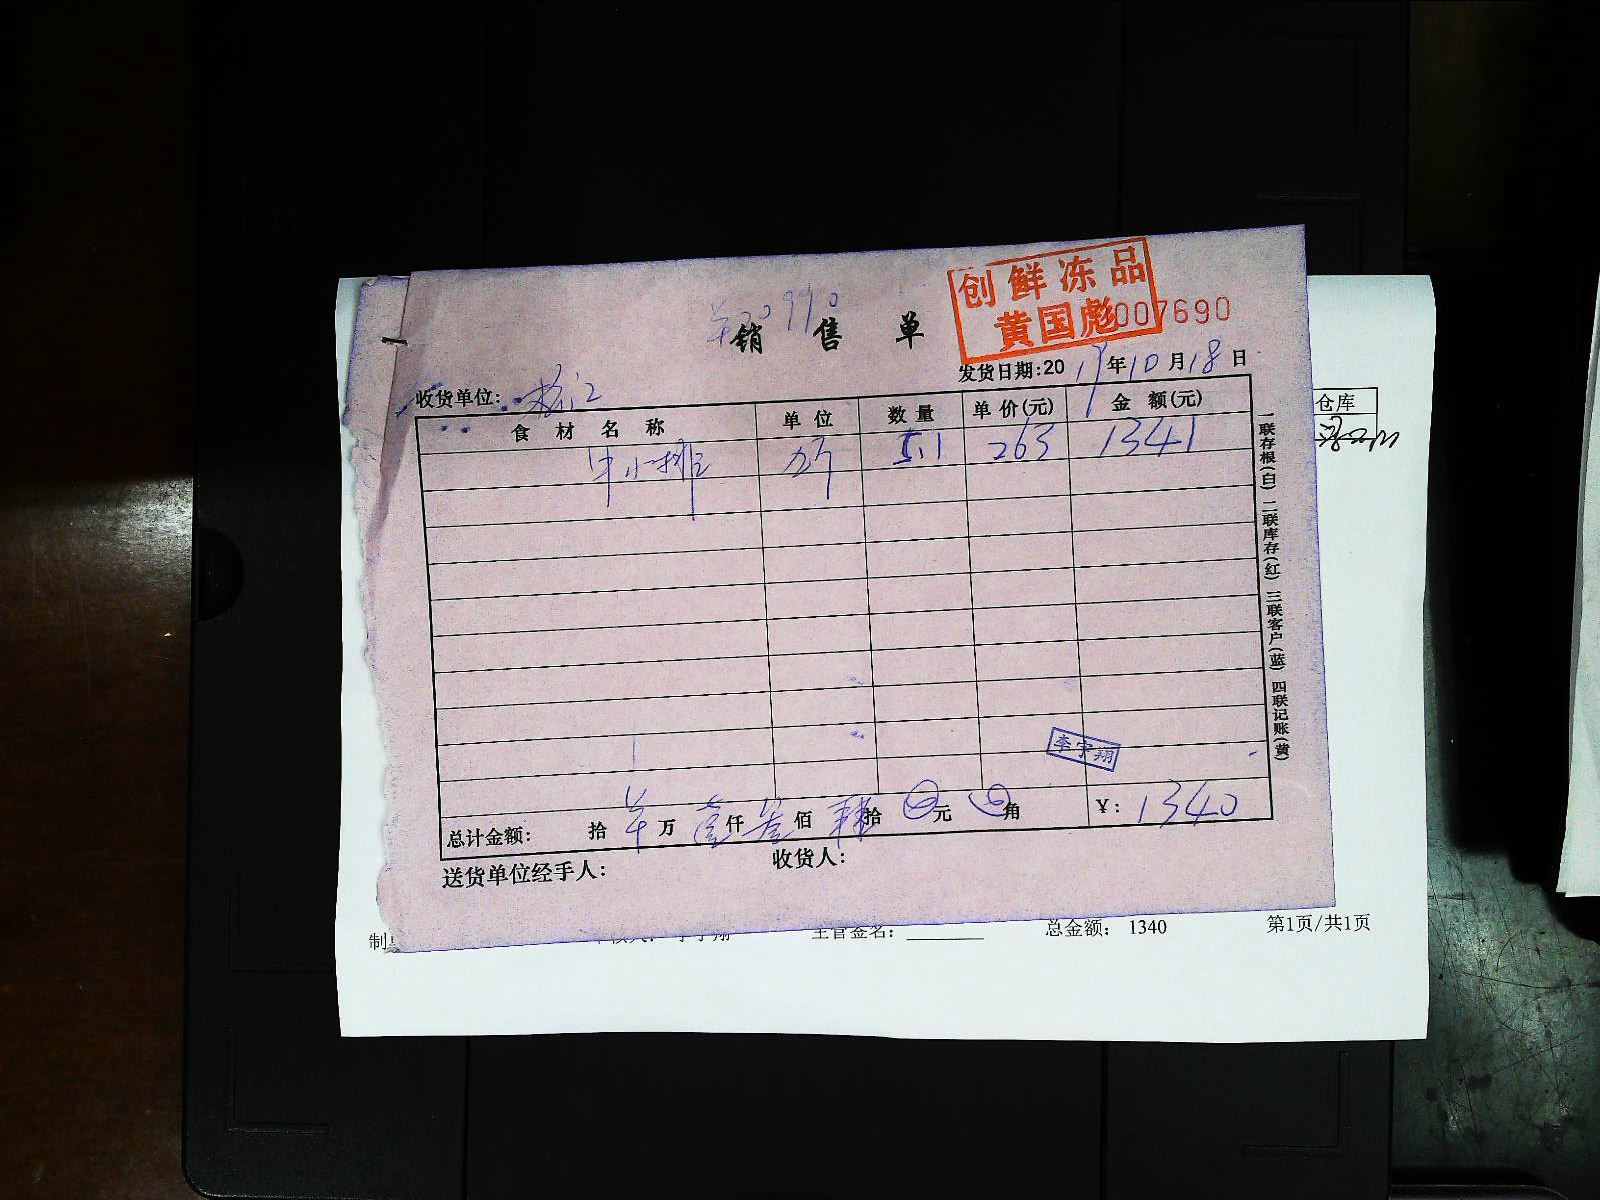 创鲜冻品
黄国彪
007690
销售单
发货日期:2019年10月18日
收货单位:
食材名称 单位 数量 单价(元) 金额(元)
牛小排 斤 5.1 263 1341
仓库
一联存根(白) 二联库存(红) 三联客户(蓝) 四联记账(黄)
李宇翔
总计金额: 拾 万 壹仟 叁佰 肆拾 元 角 ¥: 1340
送货单位经手人: 收货人:
总金额: 1340 第1页/共1页